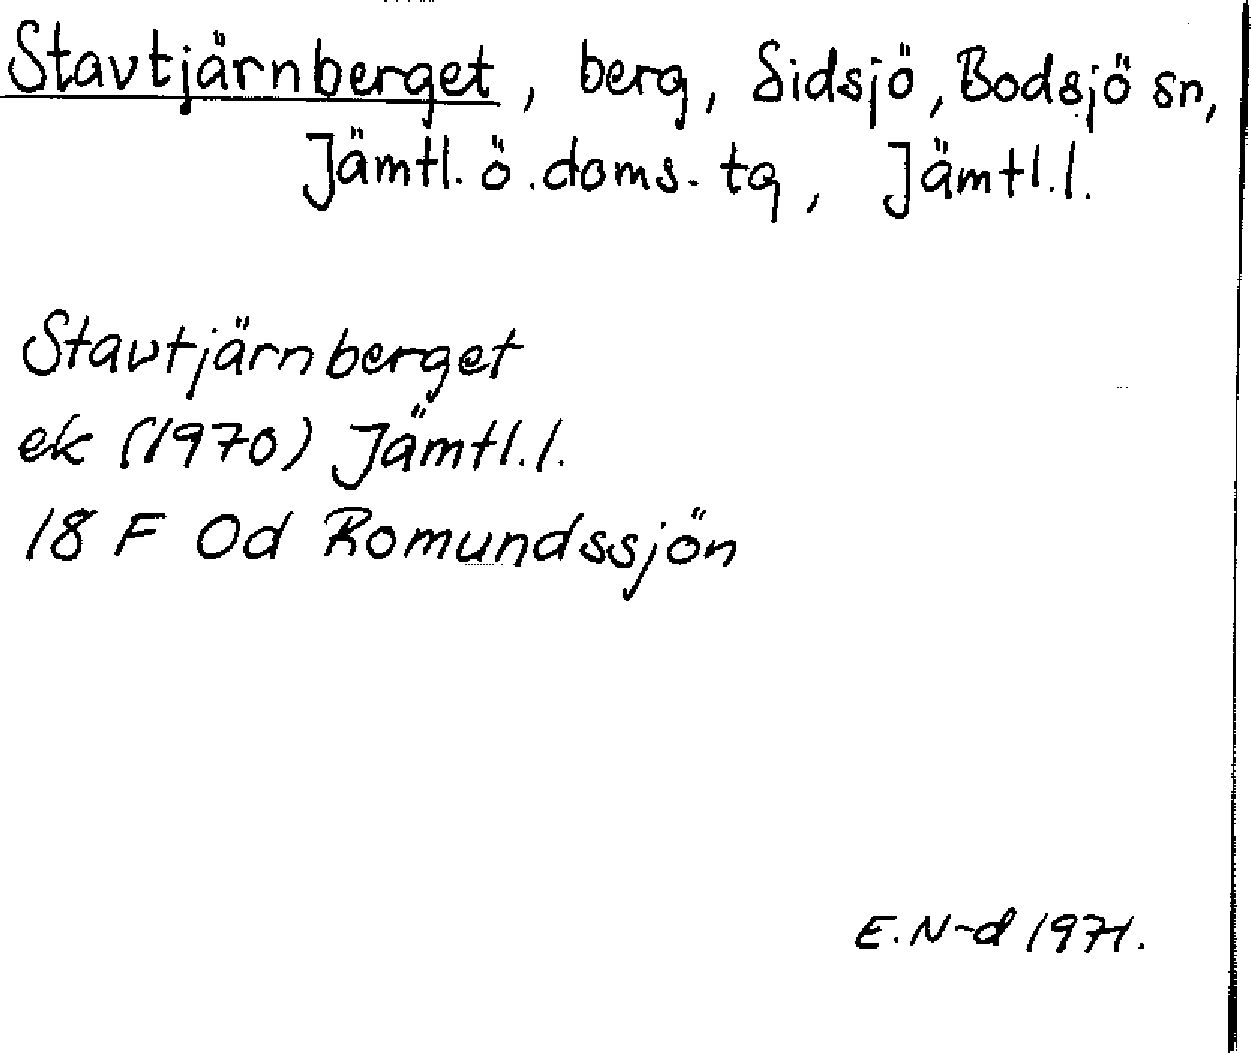 Stavtjärnberget, berg, Sidsjö, Bodsjö sn,
Jämtl. ö. doms. tg, Jämtl. l.
Stavtjärnberget
ek (1970) Jämtl. l.
18 F 0d Romundssjön
E. N-d 1971.